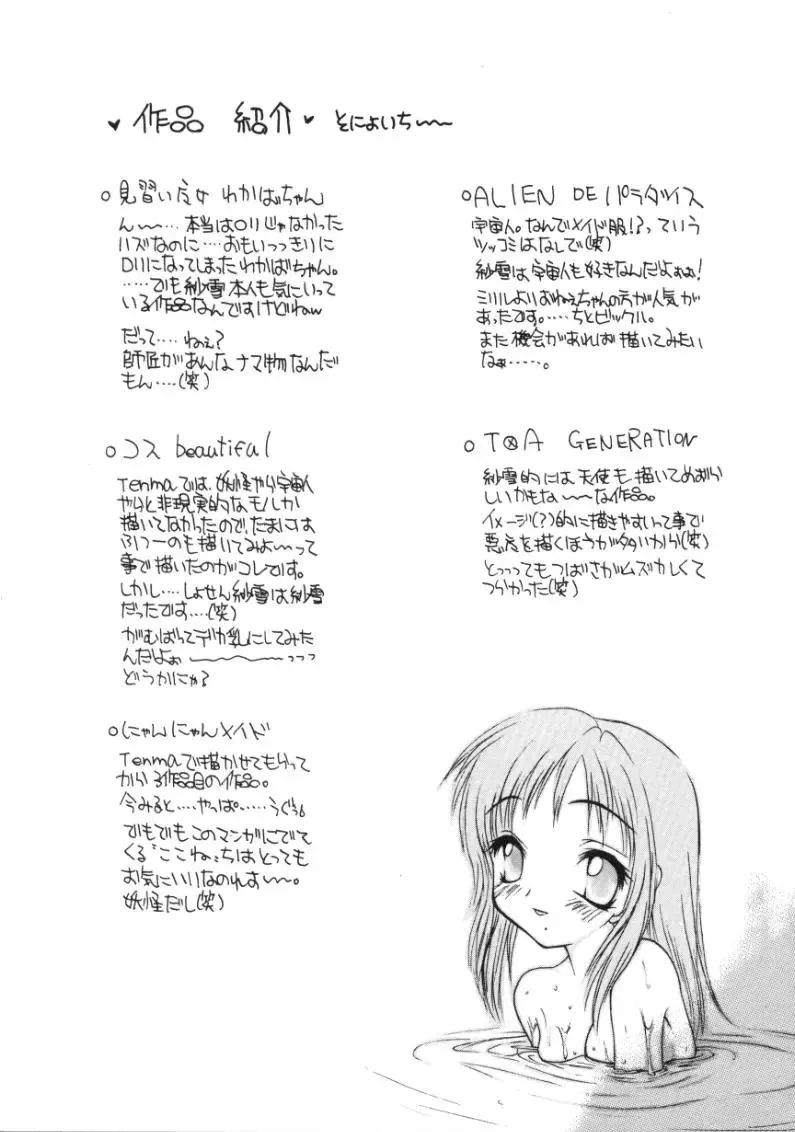 ♥ 作品 紹介 ♥ そによいち〜〜
○見習い魔女 わかばちゃん
ん〜〜‥‥本当はロリじゃなかった
ハズなのに‥‥おもいっっきりに
ロリになってしまったわかばちゃん。
‥‥‥でも紗雪本人も気にいって
いる作品なんですけどねw
だって‥‥ねぇ?
師匠があんなナマ物なんだ
もん‥‥(笑)
○コス beautiful
Tenmaでは、妖怪やら宇宙人
やらと非現実的なモノしか
描いてなかったので、たまには
ふつーのも描いてみよ〜って
事で描いたのがコレです。
しかし‥‥しょせん紗雪は紗雪
だったです‥‥(笑)
がむばってデカ乳にしてみた
んだよぉ〜〜〜〜っっっ
どうかにゃ?
○にゃんにゃんメイド
Tenmaで描かせてもらって
から 作品目の作品。
今みると‥‥やっぱ‥‥‥うぐぅ
でもでもこのマンガにでて
くる"ここねっちはとっても
お気にいいなのれす〜〜。
妖怪だし(笑)
○ALIEN DE パラダイス
宇宙人。なんでメイド服!?っていう
ツッコミはなしで(笑)
紗雪は宇宙人も好きなんだよぉぉ!
ミルルよりおねぇちゃんの方が人気が
あったです。‥‥‥ちとビックル。
また機会があれば描いてみたい
なぁ‥‥‥。
○T⊗A GENERATION
紗雪的には天使も描いてめずら
しいかもな〜〜な作品。
イメージ(?)的に描きやすいって事で
悪魔を描くほうが多いから(笑)
とっっってもつばさがムズかしくて
つらかった(笑)